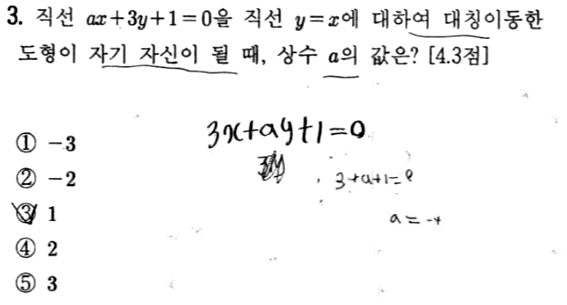 3. 직선 ax+3y+1=0을 직선 y=x에 대하여 대칭이동한
도형이 자기 자신이 될 때, 상수 a의 값은? [4.3점]
3x+ay+1=0
① -3
② -2
3+a+1=0
③ 1
a=-4
④ 2
⑤ 3